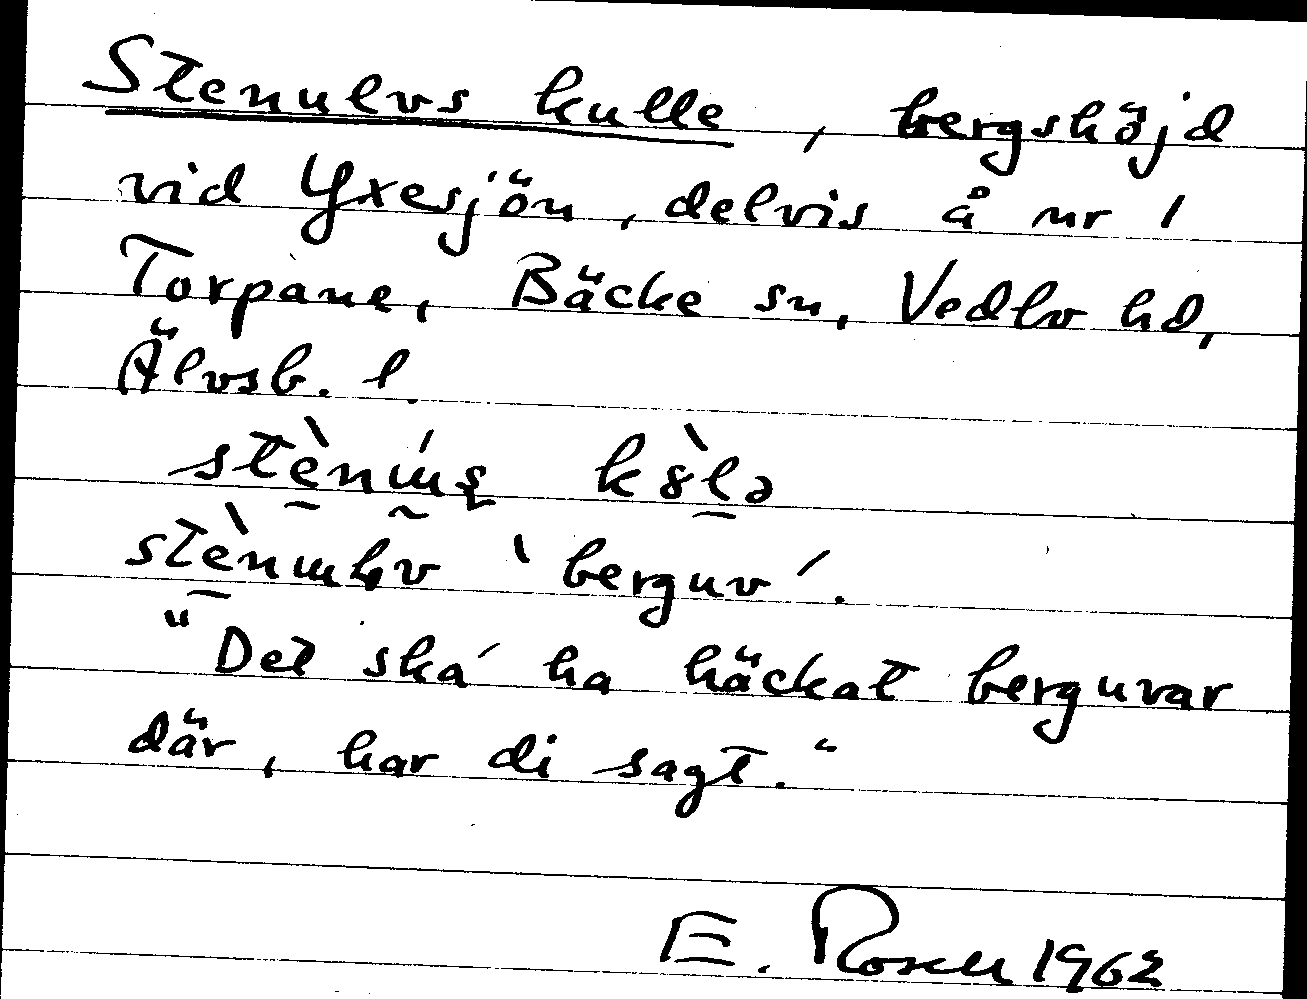 Stenulvs kulle, bergshöjd
vid Yxesjön, delvis å nr 1
Torpane, Bäcke sn, Vedbo hd,
Älvsb. l.
"Det ska' ha häckat berguvar
där, har di sagt."
'berguv'.
E. Rosell 1962